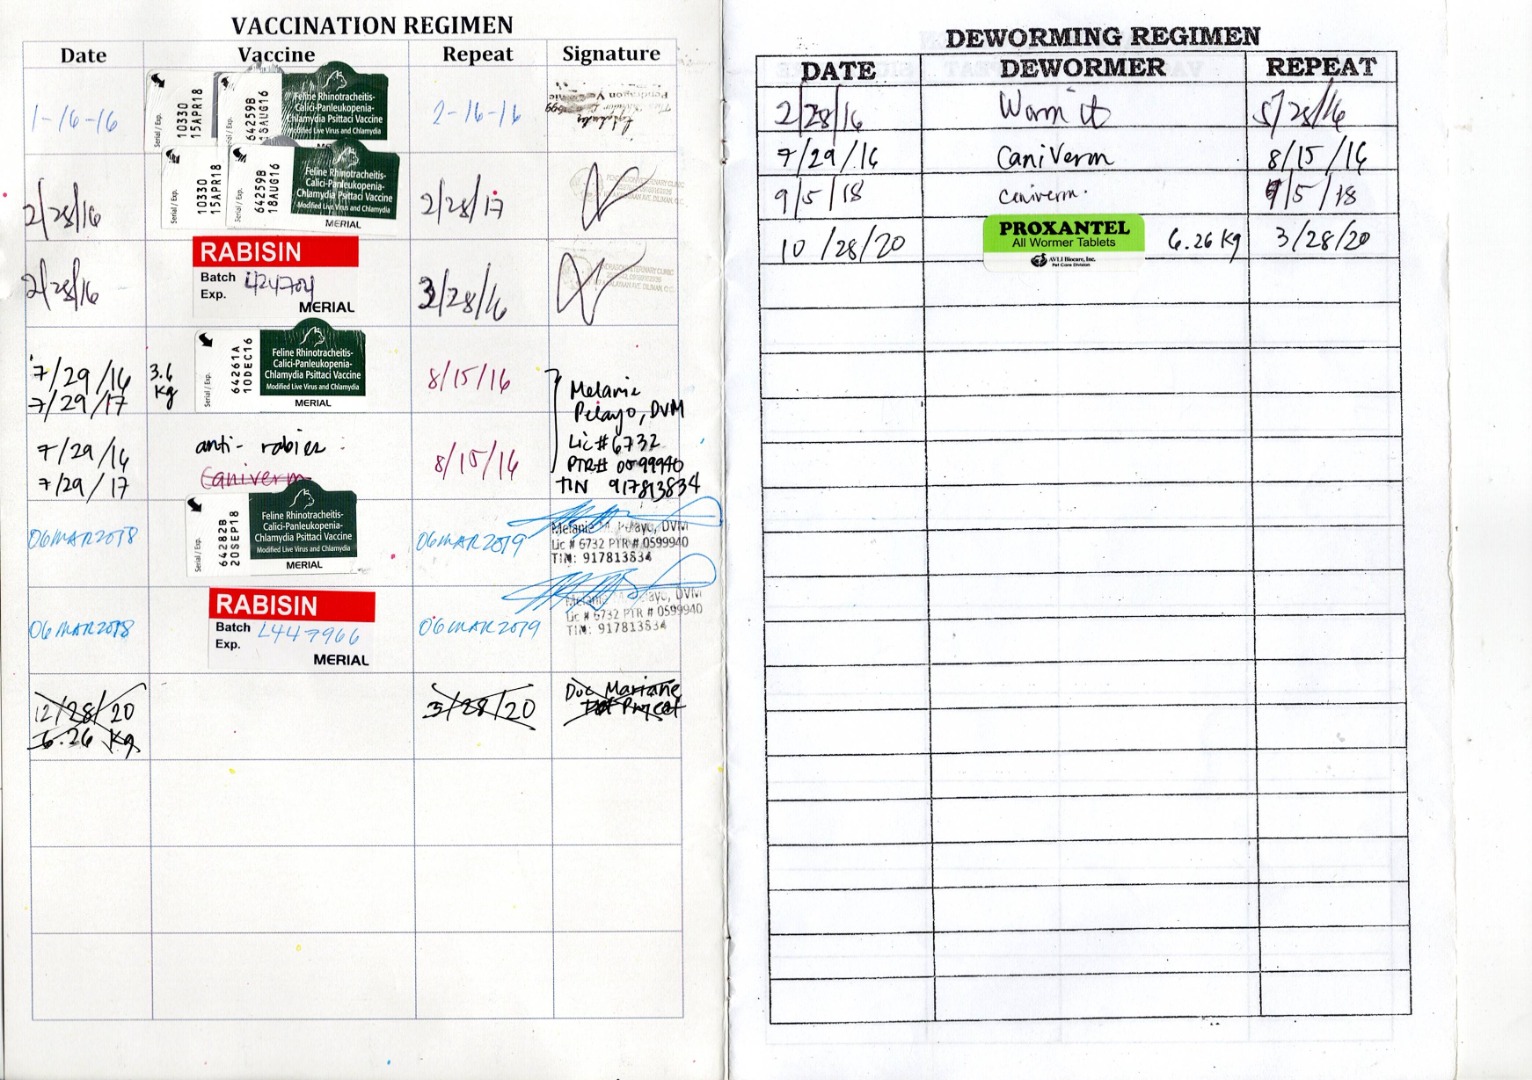 VACCINATION REGIMEN
Date Vaccine Repeat Signature
1-16-16
Serial / Exp.
10330
15APR18
Serial / Exp.
64259B
18AUG16
Feline Rhinotracheitis-
Calici-Panleukopenia-
Chlamydia Psittaci Vaccine
Modified Live Virus and Chlamydia
2-16-16
2/28/16
Serial / Exp.
10330
15APR18
Serial / Exp.
64259B
18AUG16
Feline Rhinotracheitis-
Calici-Panleukopenia-
Chlamydia Psittaci Vaccine
Modified Live Virus and Chlamydia
MERIAL
2/28/17
2/28/16
RABISIN
Batch L424704
Exp.
MERIAL
3/28/16
7/29/16
7/29/17
3.6
Kg
Serial / Exp.
64261A
10DEC16
Feline Rhinotracheitis-
Calici-Panleukopenia-
Chlamydia Psittaci Vaccine
Modified Live Virus and Chlamydia
MERIAL
8/15/16
Melanie
Pelayo, DVM
Lic # 6732
PTR# 0099940
TIN 917813834
7/29/16
7/29/17
anti-rabies
Caniverm
8/15/16
06MAR2018
Serial / Exp.
64282B
20SEP18
Feline Rhinotracheitis-
Calici-Panleukopenia-
Chlamydia Psittaci Vaccine
Modified Live Virus and Chlamydia
MERIAL
06MAR2019
Melanie Pelayo, DVM
Lic # 6732 PTR # 0599940
TIN: 917813834
06MAR2018
RABISIN
Batch L447966
Exp.
MERIAL
06MAR2019
Lic # 6732 PTR # 0599940
TIN: 917813834
12/28/20
6.26 Kg
3/28/20
Doc Mariane
DEWORMING REGIMEN
DATE DEWORMER REPEAT
2/28/16 Worm it 5/28/16
7/29/16 Caniverm 8/15/16
9/5/18 caniverm. 9/5/18
10/28/20
PROXANTEL
All Wormer Tablets
AVLI Biocare, Inc.
Pet Care Division
6.26 Kg
3/28/20